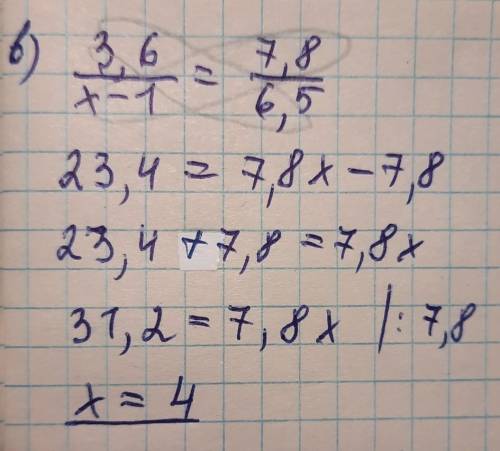 в) 3,6 / x-1 = 7,8 / 6,5
23,4 = 7,8x - 7,8
23,4 + 7,8 = 7,8x
31,2 = 7,8x |: 7,8
x = 4